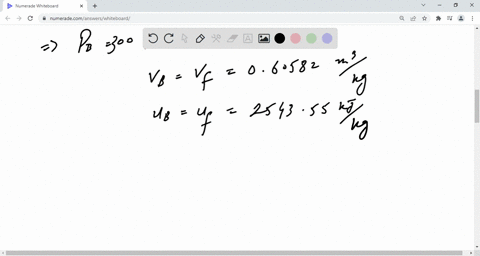 Numerade Whiteboard
numerade.com/answers/whiteboard/
⇒ P_B = 300
V_B = V_f = 0.60582 m³/kg
u_B = u_f = 2543.55 kJ/kg